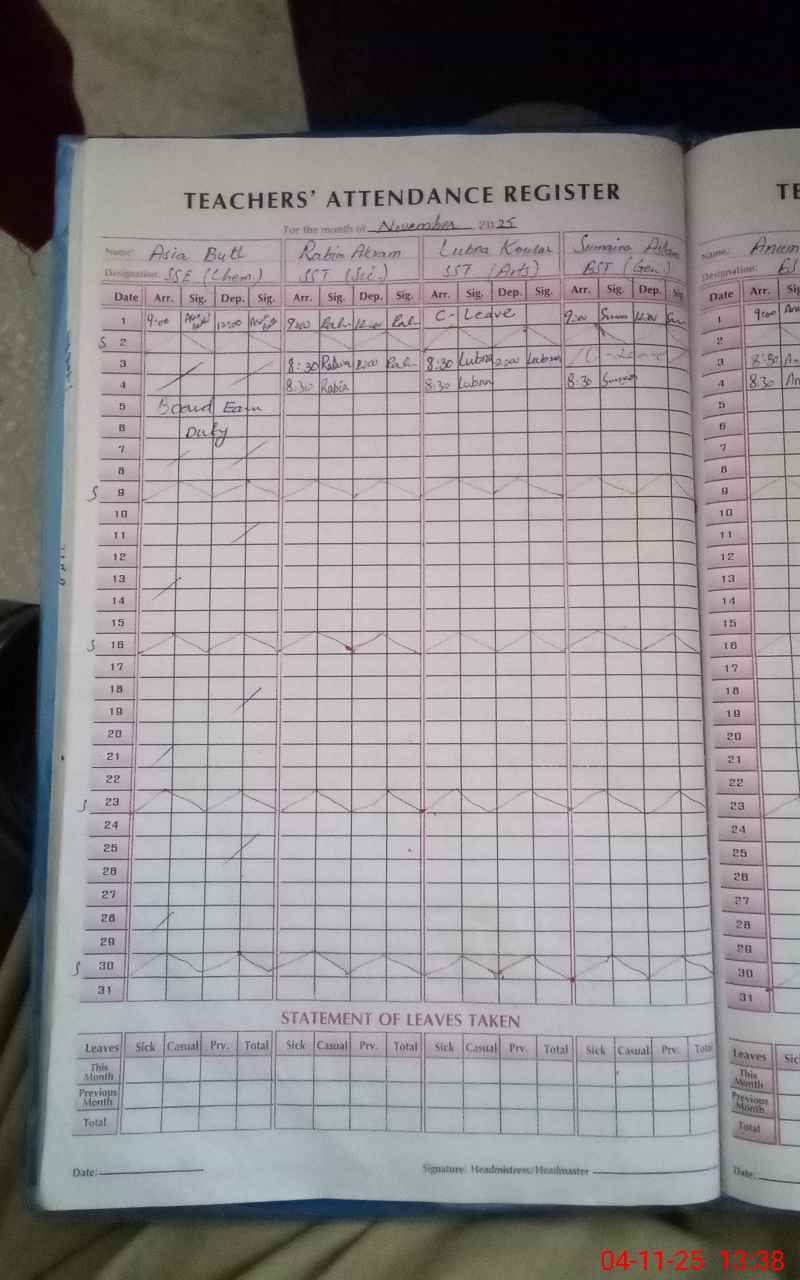 TEACHERS' ATTENDANCE REGISTER
For the month of November 2025
Name: Asia Butt Rabia Akram Lubna Kousar Sumaira Aslam
Designation: SSE (Chem) SST (Sci) SST (Arts) EST (Gen)
Date Arr. Sig. Dep. Sig. Arr. Sig. Dep. Sig. Arr. Sig. Dep. Sig. Arr. Sig. Dep. Sig
1 9:00 12:00 9:00 12:00 C-Leave 9:00 12:00
S 2
3 8:30 Rabia 2:00 8:30 Lubna 2:00 Lubna
4 8:30 Rabia 8:30 Lubna 8:30
5 Board Eam
6 Duty
7
8
S 9
10
11
12
13
14
15
S 16
17
18
19
20
21
22
S 23
24
25
26
27
28
29
S 30
31
STATEMENT OF LEAVES TAKEN
Leaves Sick Casual Prv. Total Sick Casual Prv. Total Sick Casual Prv. Total Sick Casual Prv. Total
This Month
Previous Month
Total
Date:
Signature: Headmistress/Headmaster
TE
Name: Anum
Designation: ES
Date Arr. Sig
1 9:00
2
3 8:30 An
4 8:30 An
5
6
7
8
9
10
11
12
13
14
15
16
17
18
19
20
21
22
23
24
25
26
27
28
29
30
31
Leaves Sic
This Month
Previous Month
Total
Date:
04-11-25 13:38